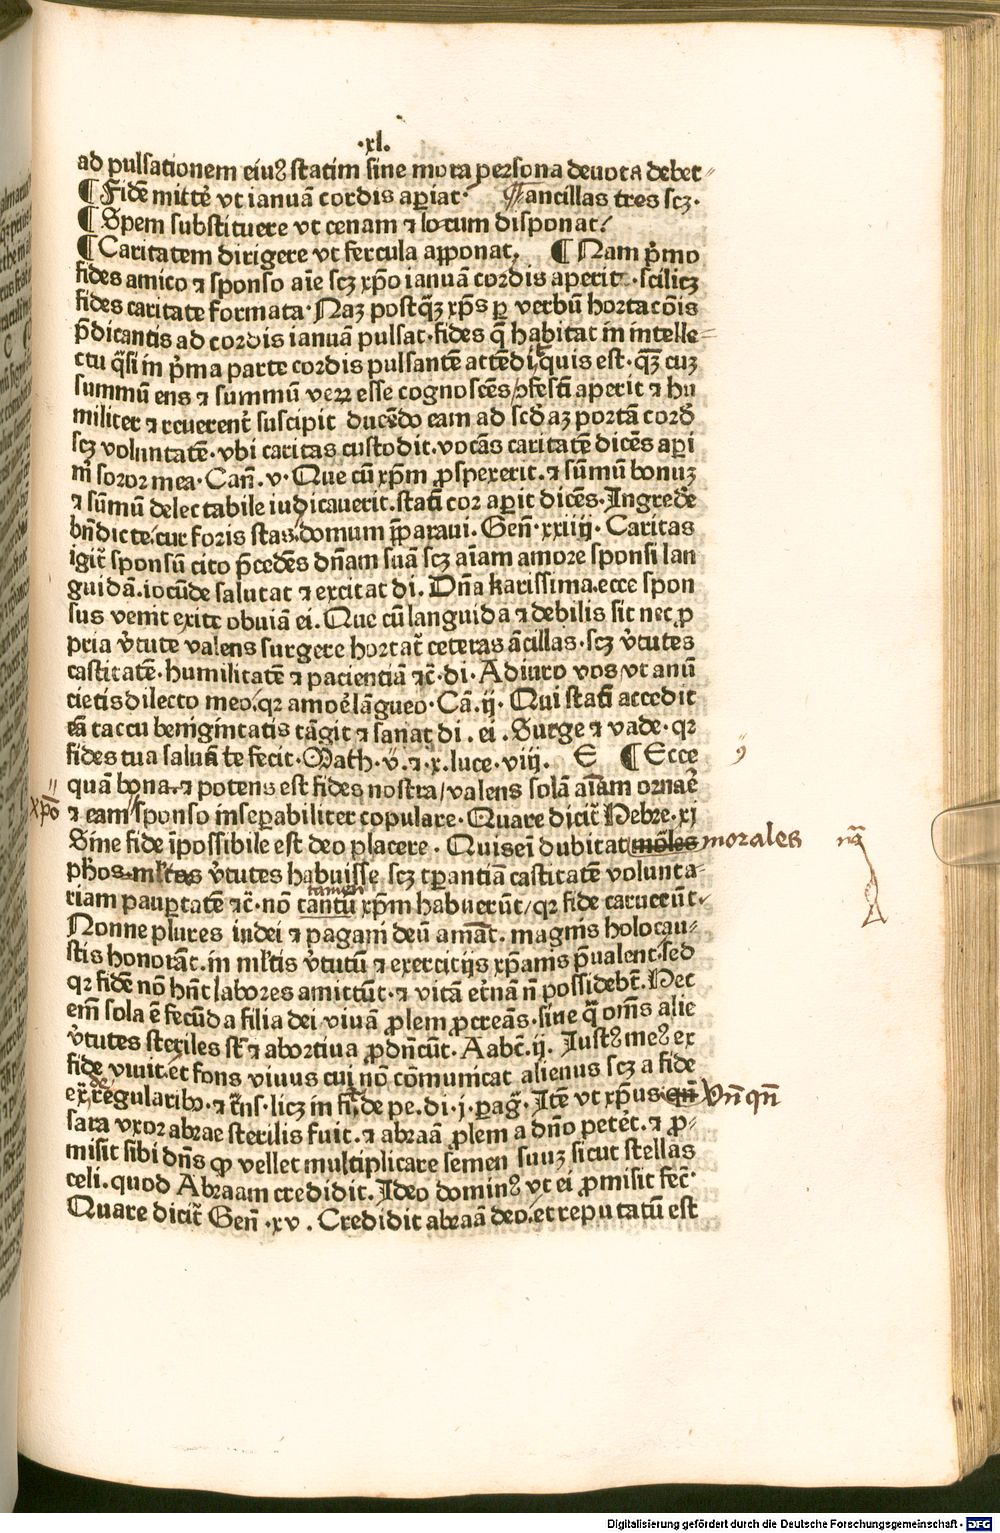 ·xl.
ad pulsationem eiuꝰ statim sine mora persona deuota debet
¶ Fidē mitte᷒ vt ianuā cordis aꝑiat· ¶ ancillas tres scꝫ·
¶ Spem substituere vt cenam ⁊ locum disponat/
¶ Caritatem dirigere vt fercula aꝑponat, ¶ Nam p̄mo
fides amico ⁊ sponso aīe scꝫ xp̄o ianuā cordis aperit·scilicꝫ
fides caritate formata·Naꝫ postq̄ꝫ xp̄s ꝑ verbū hortacōis
p̄dicantis ad cordis ianuā pulsat·fides q̄ habitat in intelle
ctu q̄si in p̄ma parte cordis pulsantē attēdit quis est·q̄ꝫ cuꝫ
summū ens ⁊ summū veꝝ esse cognoscēs/ꝯfestī aperit ⁊ hu
militer ⁊ reuerent᷑ suscipit ducēdo eam ad scd̄aꝫ portā cord̄
scꝫ voluntatē·vbi caritas custodit.vocās caritatē dicēs aꝑi
m̄ soror mea·Cañ.v·Que cū xp̄m ꝓspexerit.⁊ sūmū bonuꝫ
⁊ sūmū delectabile iudicauerit.statī cor aꝑit dicēs·Ingrede
bn̄dicte/cur foris stas.domum p̄paraui.Geñ·xxiiij·Caritas
igit᷑ sponsū cito p̄cedēs dn̄am suā scꝫ aīam amore sponsi lan
guidā.iocūde salutat ⁊ excitat di.Dn̄a karissima.ecce spon
sus venit exite obuiā ei.Que cū languida ⁊ debilis sit nec ꝓ
pria v̄tute valens surgere hortat᷑ ceteras ācillas·scꝫ v̄tutes
castitatē·humilitatē ⁊ pacientiā ⁊c̄·di·Adiuro vos/vt anū
cietis dilecto meo/qꝛ amoē lāgueo·Cā.ij·Qui statī accedit
tā taccu benignitatis tāgit ⁊ sanat di.ei.Surge ⁊ vade·qꝛ
fides tua saluā te fecit·Math·v̄.⁊·x.luce·viij. E ¶ Ecce
quā bona.⁊ potens est fides nostra/valens solā aīam ornaē
xp̄o ⁊ eam sponso inseꝑabiliter copulare·Quare dicit᷑ Hebre·xj
Sine fide īpossibile est deo placere·Quis eī dubitat mōles morales nō
ph̄os mł̄tas v̄tutes habuisse scꝫ tꝑantiā castitatē volunta
tamen
riam pauꝑtatē ⁊c̄·nō tantū xp̄m habuerūt/qꝛ fide caruerūt·
Nonne plures iudei ⁊ pagani deū amāt.magnis holocau
stis honorāt.in mł̄tis v̄tutū ⁊ exercitijs xp̄anis p̄ualent·sed
qꝛ fidē nō hn̄t labores amittūt·⁊ vitā et᷑nā n̄ possidebūt.Hec
em̄ sola ē fecūda filia dei viuā ꝓlem ꝓcreās·sine q̄ om̄s alie
v̄tutes steriles st̄ ⁊ abortiua ꝓdn̄cūt.Aabc̄.ij. Iustꝰ meꝰ ex
fide viuit.et fons viuus cui nō cōmunicat alienus scꝫ a fide
de
ex̄.regularibꝰ·⁊ t̄ns·licꝫ in fi·de pe.di·j·ꝑag̃·Itē vt xp̄us qn̄ Vn̄ qn̄
sara vxor abrae sterilis fuit.⁊ abraā ꝓlem a dn̄o petēt.⁊ ꝓ
misit sibi dn̄s ꝙ vellet multiplicare semen suuꝫ sicut stellas
celi.quod Abraam credidit.Ideo dominꝰ vt ei ꝓmisit fec̄·
Quare dicit᷑ Geñ·xv.Credidit abraā deo.et reputatū est
Digitalisierung gefördert durch die Deutsche Forschungsgemeinschaft - DFG